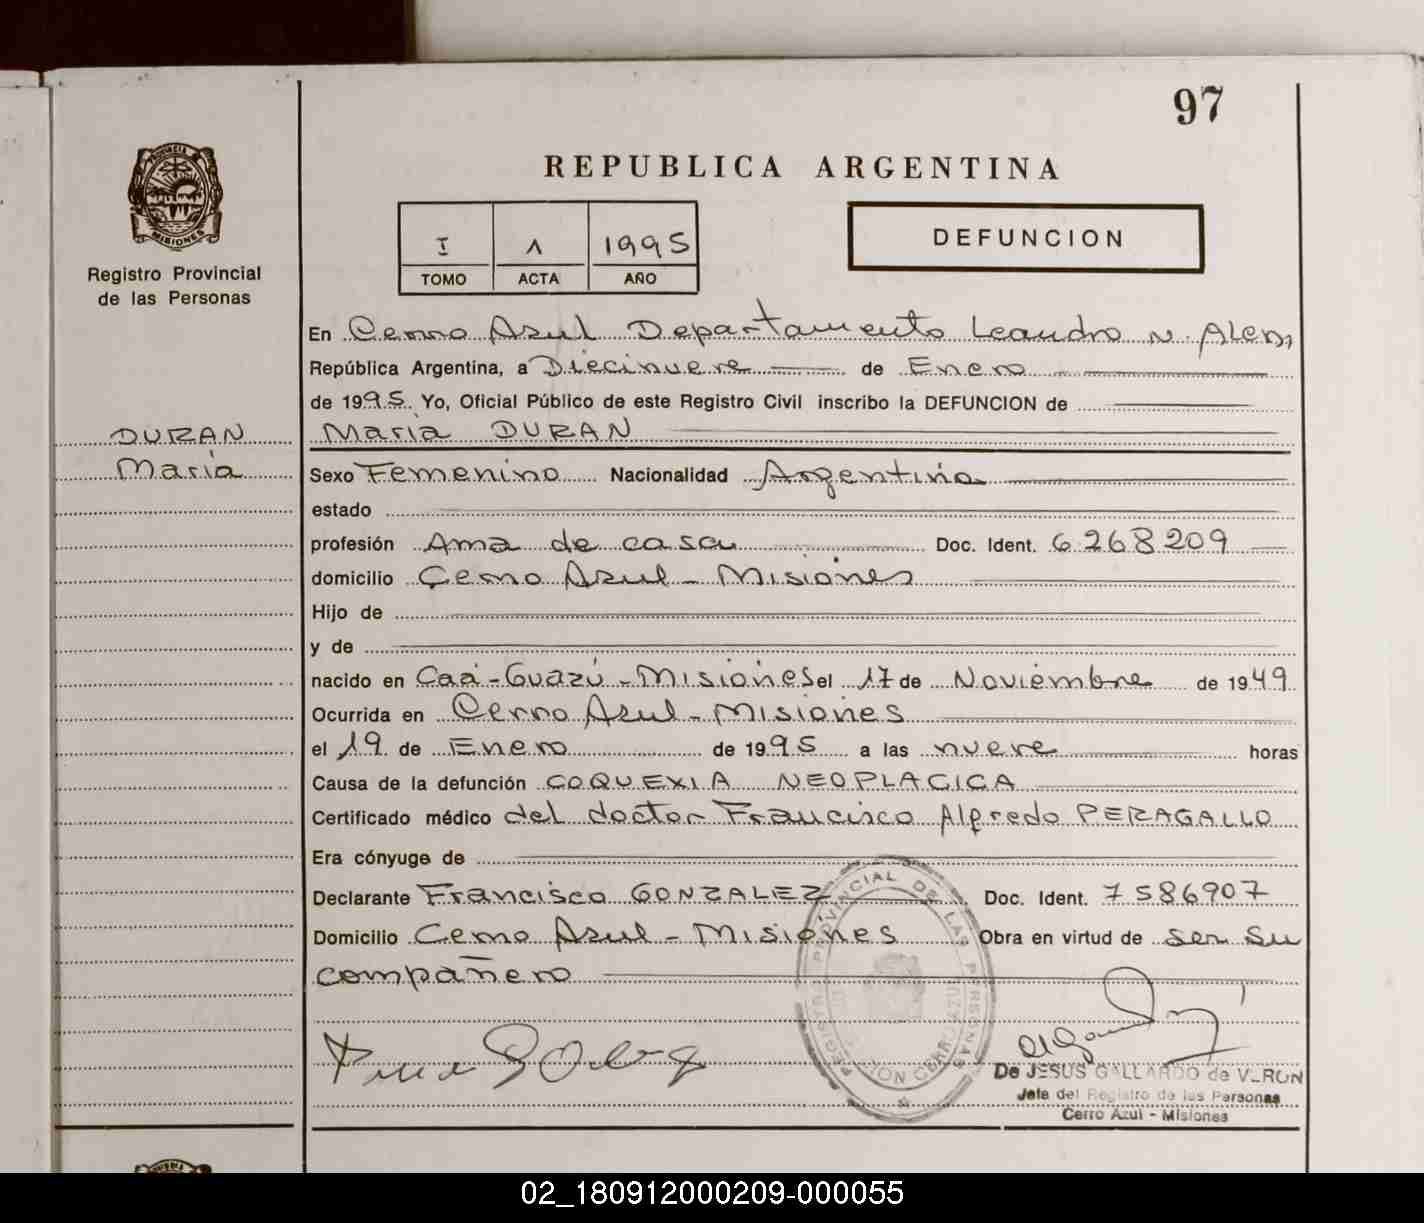 97
REPUBLICA ARGENTINA
PROVINCIA
MISIONES
Registro Provincial
de las Personas
I 1 1995
TOMO ACTA AÑO
DEFUNCION
En Cerro Azul Departamento Leandro N. Alem,
República Argentina, a Diecinueve de Enero
de 1995. Yo, Oficial Público de este Registro Civil inscribo la DEFUNCION de
DURAN
María
María DURAN
Sexo Femenino Nacionalidad Argentina
estado
profesión Ama de casa Doc. Ident. 6268209
domicilio Cerro Azul - Misiones
Hijo de
y de
nacido en Caá-Guazú - Misiones el 17 de Noviembre de 1949
Ocurrida en Cerro Azul - Misiones
el 19 de Enero de 1995 a las nueve horas
Causa de la defunción COQUEXIA NEOPLAGICA
Certificado médico del doctor Francisco Alfredo PERAGALLO
Era cónyuge de
Declarante Francisco GONZALEZ Doc. Ident. 7586907
Domicilio Cerro Azul - Misiones Obra en virtud de ser su
compañero
REGISTRO PROVINCIAL DE LAS PERSONAS
CERRO AZUL
De JESUS GALLARDO de VERON
Jefe del Registro de las Personas
Cerro Azul - Misiones
02_180912000209-000055